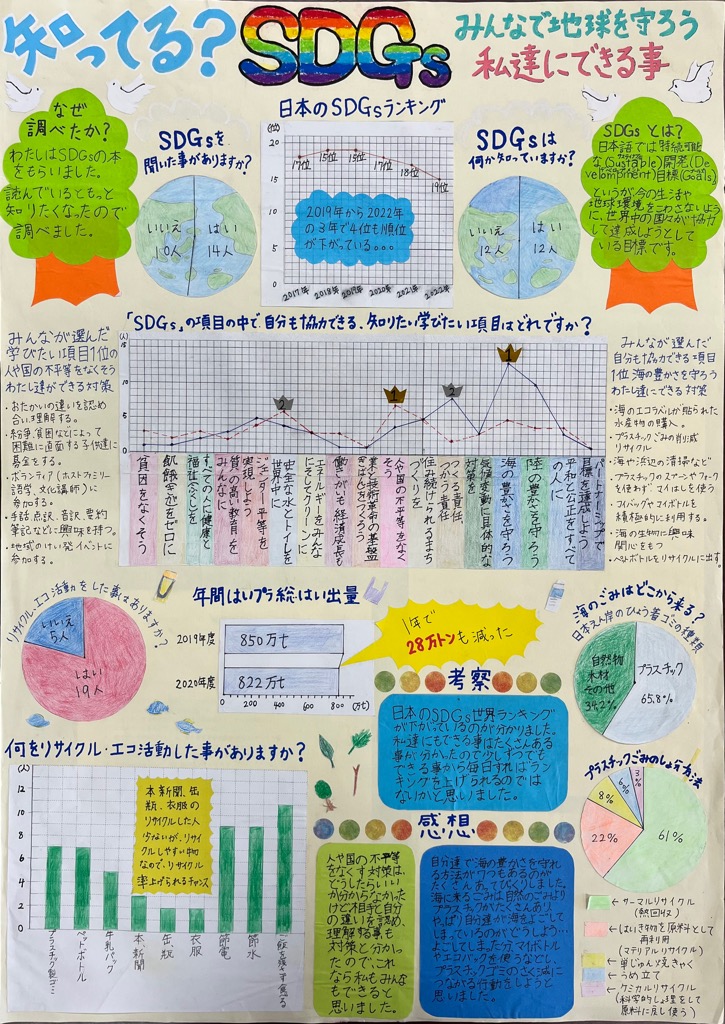 知ってる?SDGs
みんなで地球を守ろう
私達にできる事
なぜ
調べたか?
わたしはSDGsの本
をもらいました。
読んでいるともっと
知りたくなったので
調べました。
SDGsを
聞いた事がありますか?
いいえ
10人
はい
14人
日本のSDGsランキング
(位)
20
15
10
5
0
17位
15位
15位
17位
18位
19位
2019年から2022年
の3年で4位も順位
が下がっている...
2017年
2018年
2019年
2020年
2021年
2022年
SDGsは
何か知っていますか?
いいえ
12人
はい
12人
SDGsとは?
日本語では持続可能
な(Sustable)開発(De
velopment)目標(Goals)
というが、今の生活や
地球環境をこわさないよう
に、世界中の国々が協力
して達成しようとして
いる目標です。
「SDGs」の項目の中で、自分も協力できる、知りたい学びたい項目はどれですか?
(人)
15
10
5
0
2
1
2
1
貧困をなくそう
飢餓をゼロに
すべての人に健康と
福祉を
質の高い教育を
みんなに
ジェンダー平等を
実現しよう
安全な水とトイレを
世界中に
エネルギーをみんな
にそしてクリーンに
働きがいも経済成長も
産業と技術革命の基盤
をつくろう
人や国の不平等をなく
そう
住み続けられるまち
づくりを
つくる責任
つかう責任
気候変動に具体的な
対策を
海の豊かさを守ろう
陸の豊かさを守ろう
平和と公正をすべて
の人に
パートナーシップで
目標を達成しよう
みんなが選んだ
学びたい項目1位の
人や国の不平等をなくそう
わたし達ができる対策
・おたがいの違いを認め
合い理解する。
・紛争、貧困などによって
困難に直面する子供達に
募金をする。
・ボランティア(ホストファミリー
語学、文化講師)に
参加する。
・手話、点訳、音訳、要約
筆記などに興味を持つ。
・地域のけい発イベントに
参加する。
みんなが選んだ
自分も協力できる項目
1位 海の豊かさを守ろう
わたし達にできる対策
・海のエコラベルが貼られた
水産物の購入。
・プラスチックごみの削減
リサイクル
・海や浜辺の清掃など
・プラスチックのスプーンやフォーク
を使わず、マイはしを使う
・マイバッグやマイボトルを
積極的に利用する。
・海の生物に興味
関心をもつ
・ペットボトルをリサイクルに出す。
リサイクル・エコ活動をした事はありますか?
いいえ
5人
はい
19人
年間はいプラ総はい出量
2019年度
850万t
2020年度
822万t
0
200
400
600
800
(万t)
1年で
28万トンも減った
海のごみはどこから来る?
日本えん岸のひょう着ゴミの種類
自然物
木材
その他
34.2%
プラスチック
65.8%
考察
日本のSDGs世界ランキング
が下がっているのが分かりました。
私達にもできる事はたくさんある
事が分かったので少しずつでも
できる事から毎日すればラン
キングを上げられるのでは
ないかと思いました。
何をリサイクル・エコ活動した事がありますか?
(人)
12
10
8
6
4
2
0
本、新聞、缶、
瓶、衣服の
リサイクルした人
少ないが、リサイ
クルしやすい物
なので、リサイクル
率上げられるチャンス
プラスチック製ゴミ
ペットボトル
牛乳パック
本、新聞
缶、瓶
衣服
節電
節水
ご飯を残さず食べる
感想
人や国の不平等
をなくす対策は、
どうしたらいい
か分からなかった
けど相手と自分
の違いを認め、
理解する事も
対策と分かっ
たので、これ
なら私もみんな
もできると
思いました。
自分達で海の豊かさを守れ
る方法が7つもあるのが
たくさんあってびっくりしました。
海に来るごみは自然のごみより
プラスチックがたくさんあり、
やっぱり自分達が海をよごしてし
まっているのがどうしよう...
よごしてしまった分、マイボトル
やエコバックを使うなどし、
プラスチックゴミのさく減に
つながる行動をしようと
思いました。
プラスチックごみのしょ分方法
3%
6%
8%
22%
61%
←サーマルリサイクル
(熱回収)
←はいき物を原料として
再利用
(マテリアルリサイクル)
←単じゅんしょうきゃく
←うめ立て
←ケミカルリサイクル
(科学的しょ理をして
原料に戻し使う)